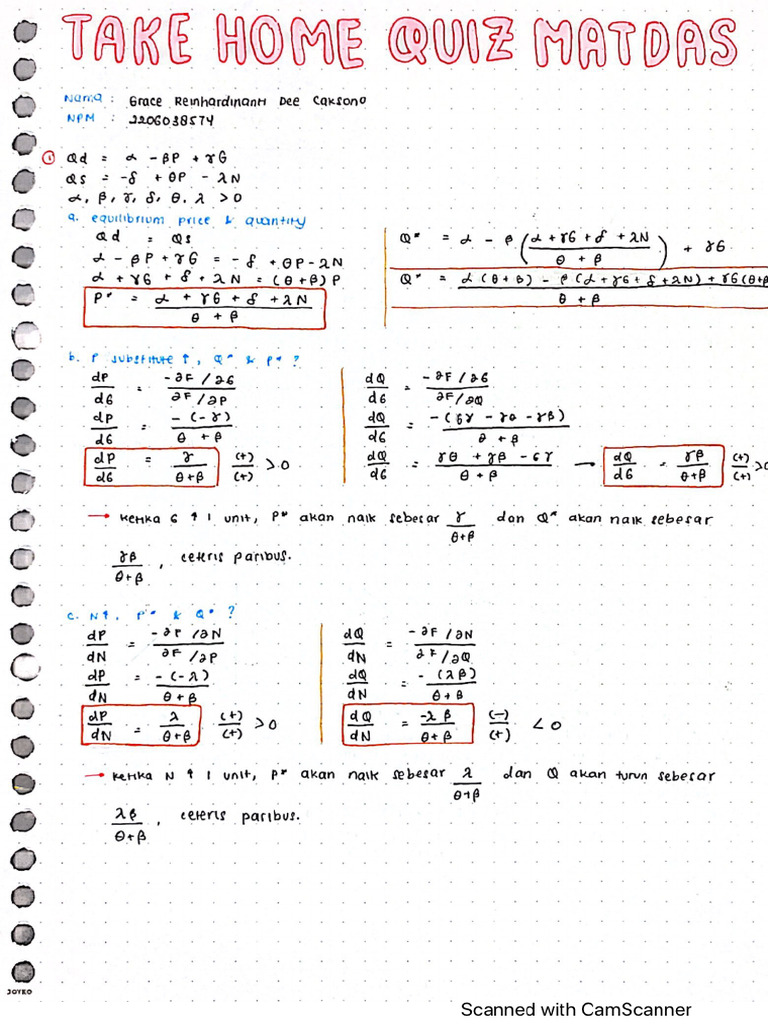 TAKE HOME QUIZ MATDAS
Nama : Grace Reinhardinanti Dee Caksono
NPM : 2206038574
① Qd = α - βP + γG
Qs = -δ + θP - λN
α, β, γ, δ, θ, λ > 0
a. equilibrium price & quantity
Qd = Qs
α - βP + γG = -δ + θP - λN
α + γG + δ + λN = (θ + β) P
P* = (α + γG + δ + λN) / (θ + β)
Q* = α - β ((α + γG + δ + λN) / (θ + β)) + γG
Q* = (α (θ + β) - β (α + γG + δ + λN) + γG (θ+β / (θ + β)
b. P substitute ↑, Q* & P* ?
dP/dG = (-∂F / ∂G) / (∂F / ∂P)
dP/dG = (- (-γ)) / (θ + β)
dP/dG = γ / (θ+β) (+)/(+) > 0
dQ/dG = (-∂F / ∂G) / (∂F / ∂Q)
dQ/dG = (-(6γ - γθ - γβ)) / (θ + β)
dQ/dG = (γθ + γβ - 6γ) / (θ + β) → dQ/dG = γβ / (θ+β) (+)/(+) >0
→ ketika G ↑ 1 unit, P* akan naik sebesar γ/(θ+β) dan Q* akan naik sebesar
γβ/(θ+β) , ceteris paribus.
c. N↑, P* & Q* ?
dP/dN = (-∂F / ∂N) / (∂F / ∂P)
dP/dN = (- (-λ)) / (θ + β)
dP/dN = λ / (θ+β) (+)/(+) > 0
dQ/dN = (-∂F / ∂N) / (∂F / ∂Q)
dQ/dN = (- (λβ)) / (θ + β)
dQ/dN = -λβ / (θ+β) (-)/(+) < 0
→ ketika N ↑ 1 unit, P* akan naik sebesar λ/(θ+β) dan Q akan turun sebesar
λβ/(θ+β) , ceteris paribus.
JOYKO
Scanned with CamScanner